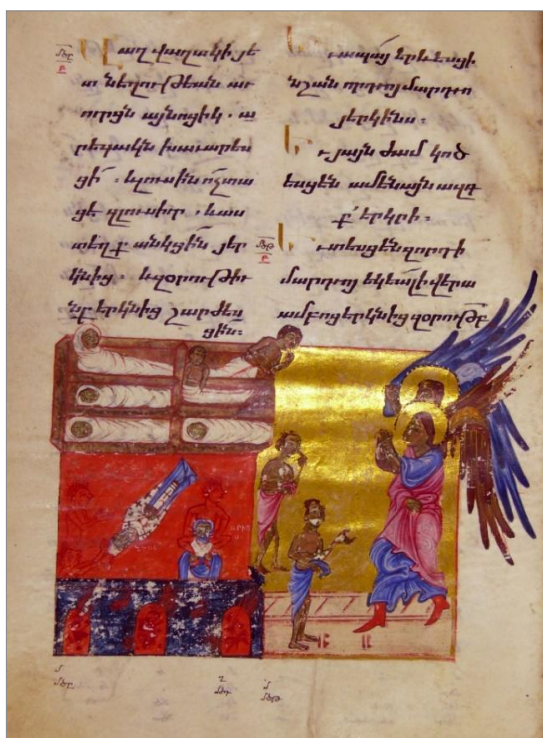 Վաղվաղակի յե
տ նեղութեան աւ
ուրցն այնոցիկ . ա
րեգակն խաւարես
ցի . և լուսին ոչ տա
ցէ զլուսիւր . և աս
տեղք անկցին յեր
կնից . և զօրութիւ
նք երկնից շարժես
ցին :
Եւ ապա երևեսցի
նշան որդւոյ մարդւո
յերկինս :
Եւ յայն ժամ կոծ
եսցեն ամենայն ազգ
ք երկրի :
Եւ տեսցեն զորդի
մարդւոյ եկեալ ի վերա
ամբոց երկնից զօրութբ